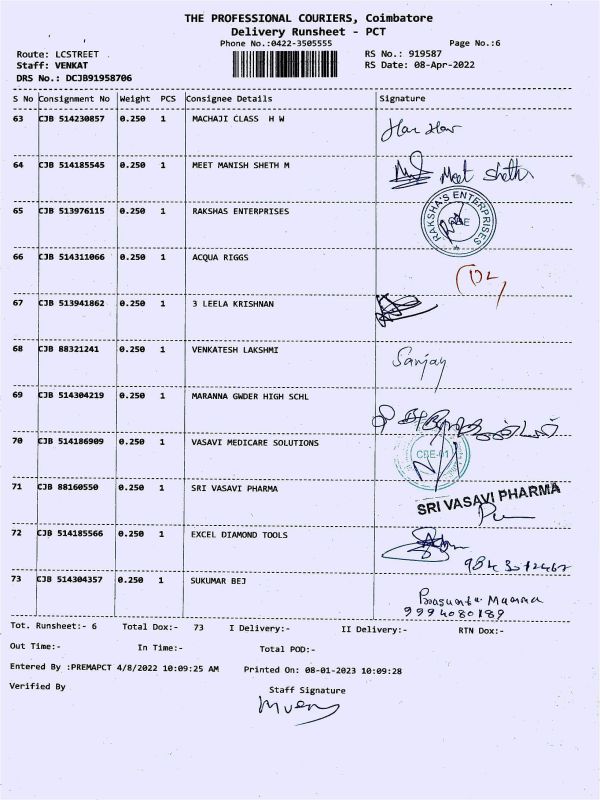 THE PROFESSIONAL COURIERS, Coimbatore
Delivery Runsheet - PCT
Phone No.:0422-3505555 Page No.:6
Route: LCSTREET RS No.: 919587
Staff: VENKAT RS Date: 08-Apr-2022
DRS No.: DCJB91958706
S No Consignment No Weight PCS Consignee Details Signature
63 CJB 514230857 0.250 1 MACHAJI CLASS H W
64 CJB 514185545 0.250 1 MEET MANISH SHETH M Meet Sheth
65 CJB 513976115 0.250 1 RAKSHAS ENTERPRISES RAKSHA'S ENTERPRISES CBE
66 CJB 514311066 0.250 1 ACQUA RIGGS
67 CJB 513941862 0.250 1 3 LEELA KRISHNAN
68 CJB 88321241 0.250 1 VENKATESH LAKSHMI Sanjay
69 CJB 514304219 0.250 1 MARANNA GWDER HIGH SCHL
70 CJB 514186909 0.250 1 VASAVI MEDICARE SOLUTIONS CBE-01
71 CJB 88160550 0.250 1 SRI VASAVI PHARMA SRI VASAVI PHARMA
72 CJB 514185566 0.250 1 EXCEL DIAMOND TOOLS
73 CJB 514304357 0.250 1 SUKUMAR BEJ
9994080189
Tot. Runsheet:- 6 Total Dox:- 73 I Delivery:- II Delivery:- RTN Dox:-
Out Time:- In Time:- Total POD:-
Entered By :PREMAPCT 4/8/2022 10:09:25 AM Printed On: 08-01-2023 10:09:28
Verified By Staff Signature